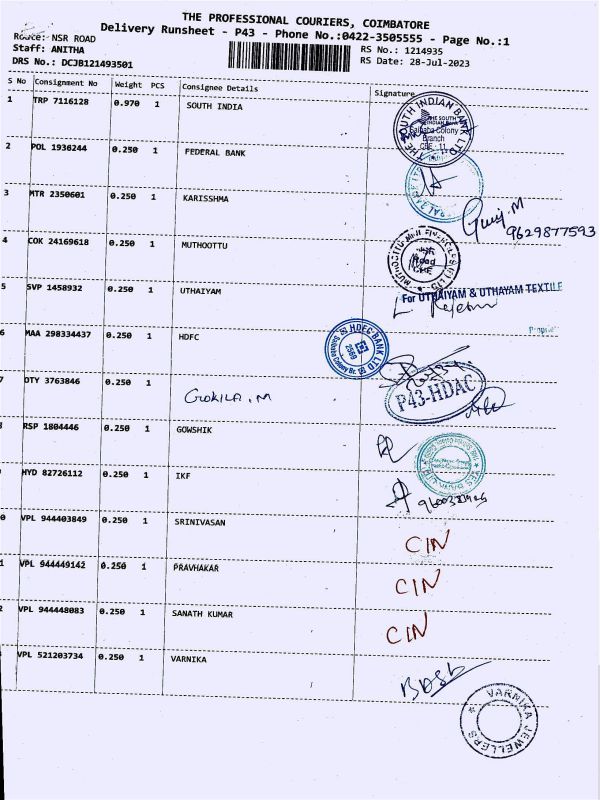 THE PROFESSIONAL COURIERS, COIMBATORE
Delivery Runsheet - P43 - Phone No.:0422-3505555 - Page No.:1
Route: NSR ROAD
Staff: ANITHA
DRS No.: DCJB121493501
RS No.: 1214935
RS Date: 28-Jul-2023
S No Consignment No Weight PCS Consignee Details Signature
1 TRP 7116128 0.970 1 SOUTH INDIA
THE SOUTH INDIAN BANK LTD
THE SOUTH
INDIAN BANK
Saibaba Colony
Branch
CBE - 11
2 POL 1936244 0.250 1 FEDERAL BANK
3 MTR 2350601 0.250 1 KARISSHMA
9629877593
4 COK 24169618 0.250 1 MUTHOOTTU
Road
CBE
5 SVP 1458932 0.250 1 UTHAIYAM
For UTHAIYAM & UTHAYAM TEXTILE
6 MAA 298334437 0.250 1 HDFC
HDFC BANK LTD
Saibaba Colony Br.
2569
7 OTY 3763846 0.250 1 GOKILA.M
P43-HDAC
8 RSP 1804446 0.250 1 GOWSHIK
HYD 82726112 0.250 1 IKF
0 VPL 944403849 0.250 1 SRINIVASAN
CIN
1 VPL 944449142 0.250 1 PRAVHAKAR
CIN
2 VPL 944448083 0.250 1 SANATH KUMAR
CIN
VPL 521203734 0.250 1 VARNIKA
VARNIKA JEWELLERS